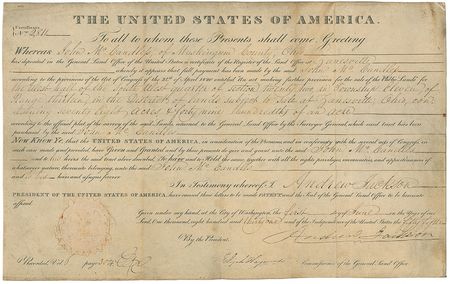 THE UNITED STATES OF AMERICA.
Certificate
To all to whom these Presents shall come, Greeting
Whereas John McCandless of Muskingum County, Ohio
has deposited in the General Land Office of the United States, a certificate of the Register of the Land Office at Zanesville
whereby it appears that full payment has been made by the said John McCandless
according to the provisions of the Act of Congress of the 24th of April 1820, entitled "An act making further provision for the sale of the Public Lands" for
the West half of the South West quarter of section twenty two in Township eleven of
Range thirteen, in the District of Lands subject to sale at Zanesville, Ohio, con-
taining seventy eight acres & forty nine hundredths of an acre
according to the official plat of the survey of the said Lands, returned to the General Land Office by the Surveyor General, which said tract has been
purchased by the said John McCandless
Now Know Ye, that the UNITED STATES OF AMERICA, in consideration of the Premises, and in conformity with the several acts of Congress, in
such case made and provided, have Given and Granted, and by these presents do give and grant unto the said John McCandless
and to his heirs the said tract above described: To have and to Hold the same, together with all the rights, privileges, immunities, and appurtenances of
whatsoever nature, thereunto belonging, unto the said John McCandless
and to his heirs and assigns forever
In Testimony whereof, I Andrew Jackson
PRESIDENT OF THE UNITED STATES OF AMERICA, have caused these letters to be made PATENT, and the Seal of the General Land Office to be hereunto
affixed.
Given under my hand, at the City of Washington, the first day of June in the Year of our
Lord one thousand eight hundred and thirty one and of the Independence of the United States the fifty fifth
By the President. Andrew Jackson
Commissioner of the General Land Office
Recorded, Vol. page